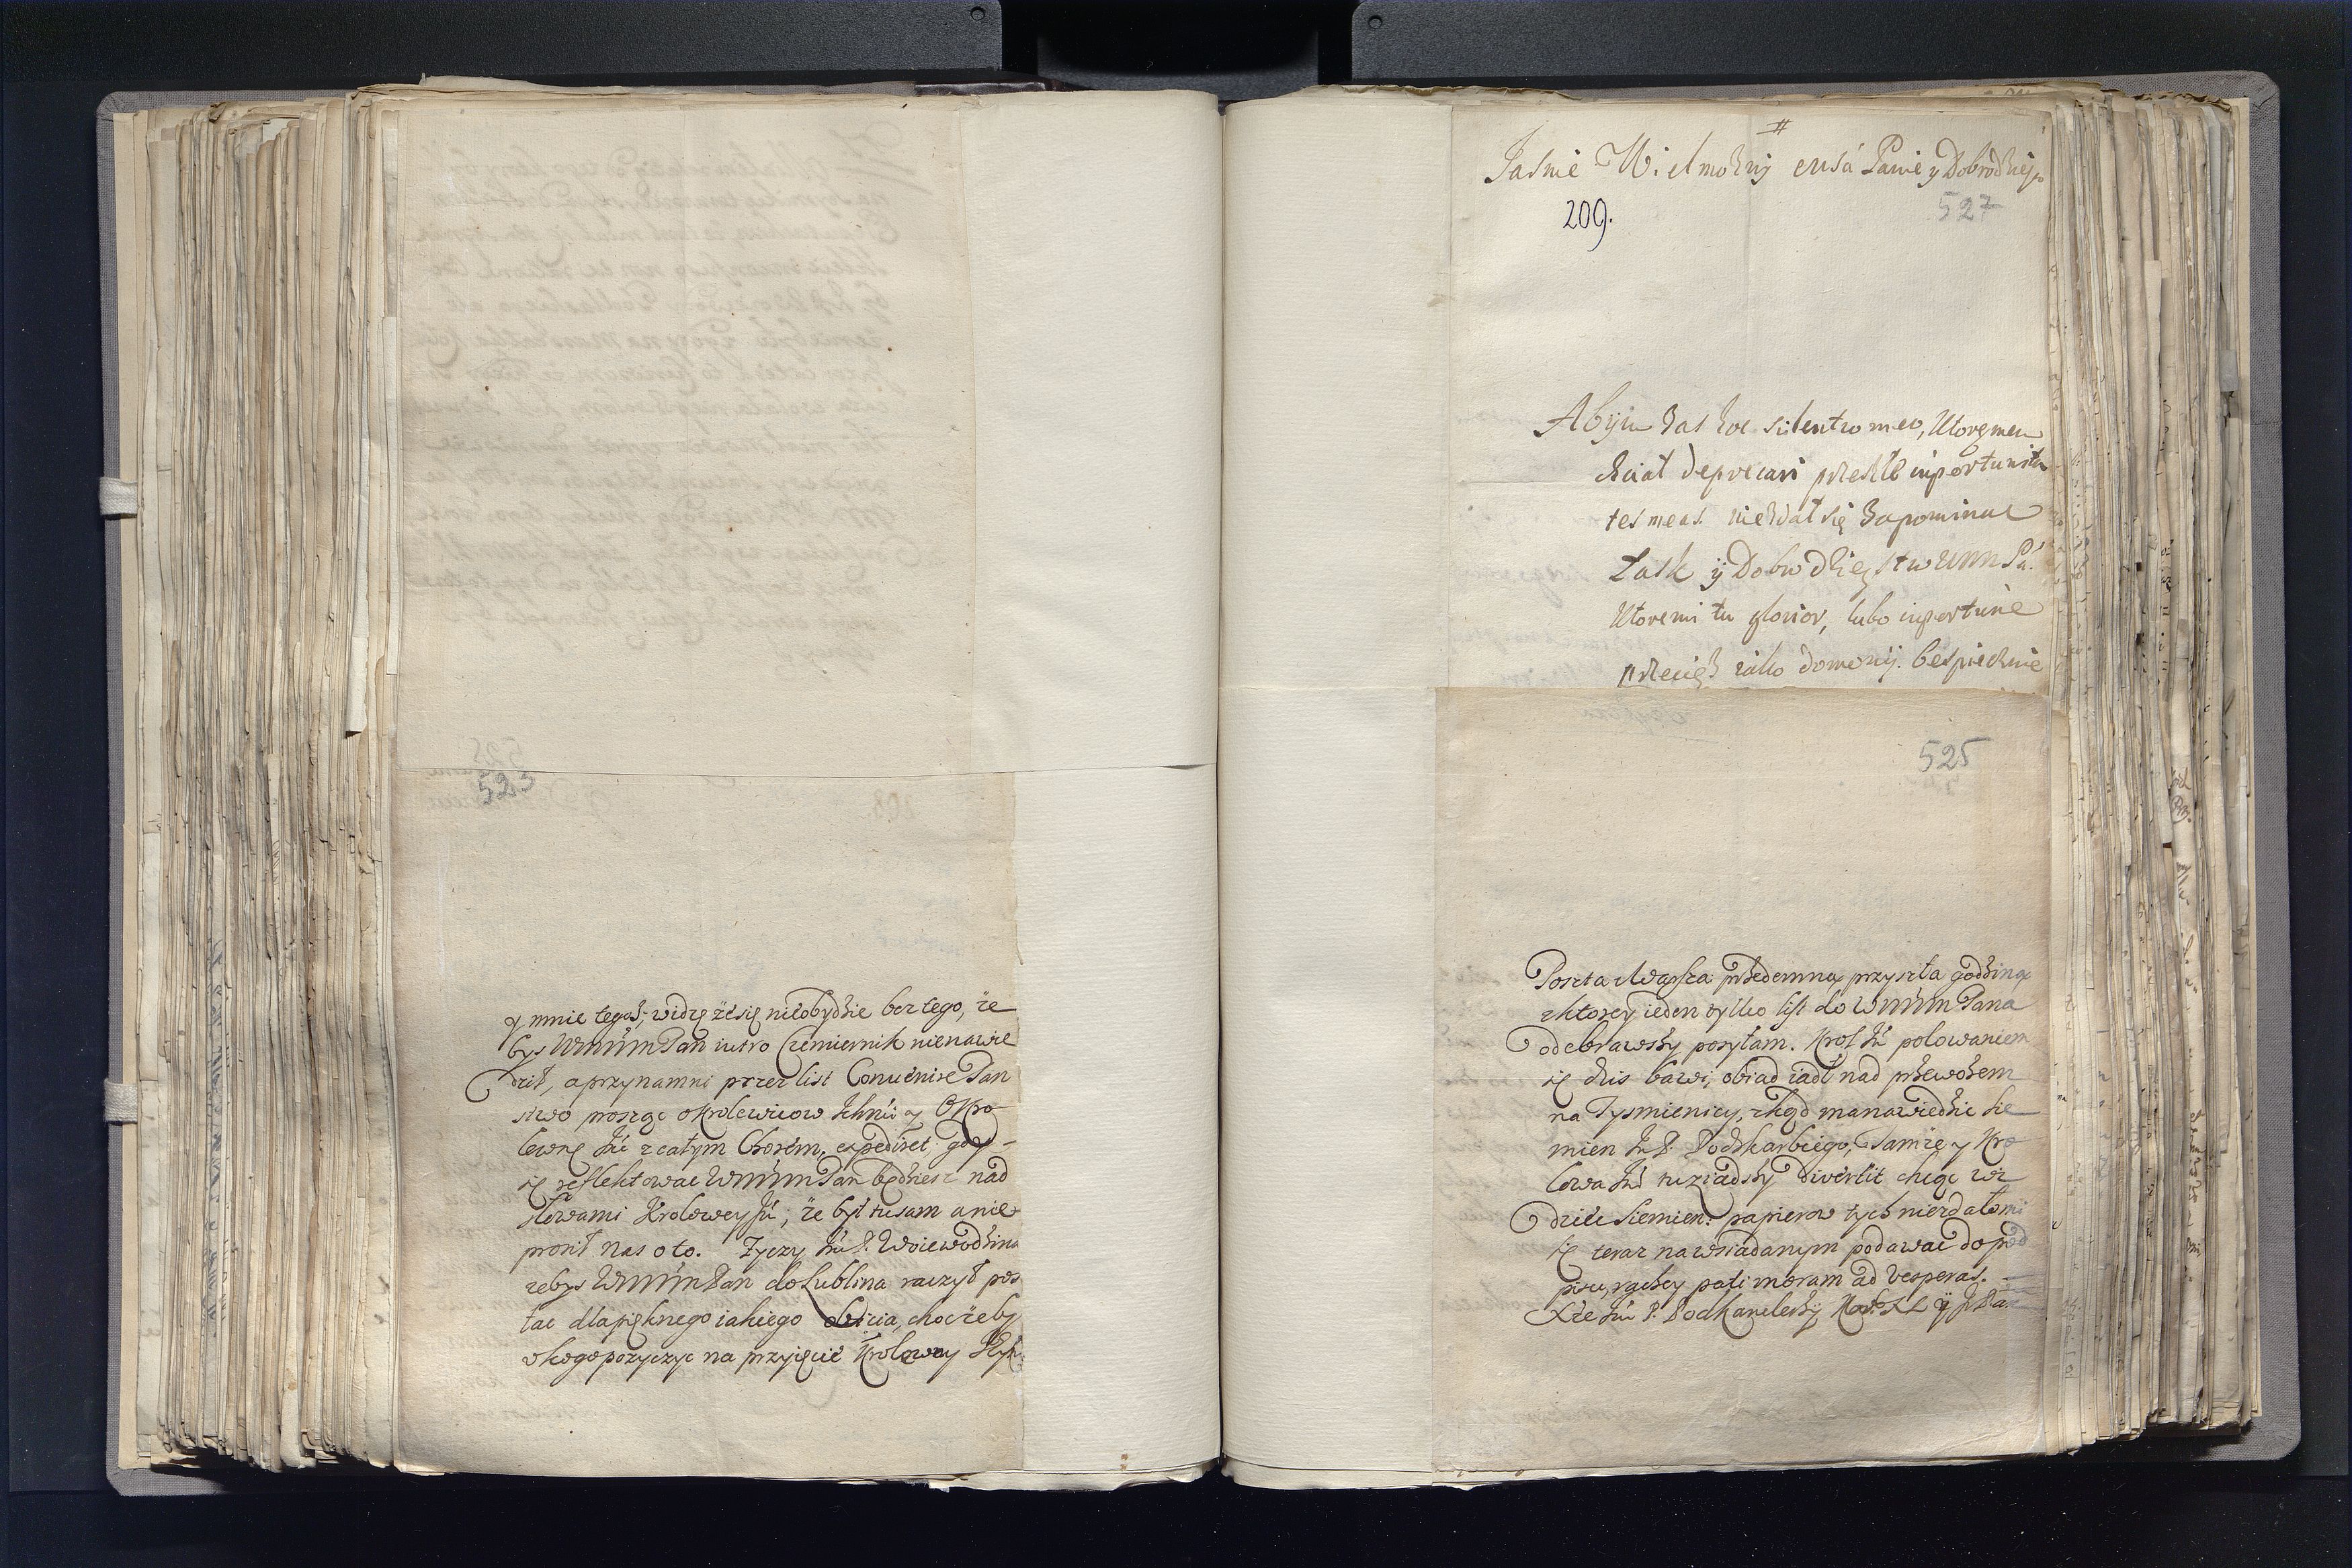 523
y mnie tegoż, widzę że się nieobydzie bez tego, że
bys WMMM Pan iutro Czemiernik nienawie
dził, a przynamni przez list Conuenire Pan
stwo proszge o Krolewicow Ichmci y O Kro
lewnę Jmć z całym Chorem, expediret gdy
się reflektowac WMMM Pan będziesz nad
słowami Krolowey Jmci, że był tu sam a nie
prosił nas o to. Zyczy Jmć P. Woiewodzina
zebys WMMM Pan do Lublina raczył pos
łac dla pięknego iakiego obicia, chocżeby
u kogo pozyczyc na przyięcie Krolowey
#
Jasnie Wielmozny
Panie y Dobrodzieju
209.
527
Abym zas hoc silentio meo, ktorym
chciał deprecari przeszłe inportunita
tes meas. niezdał się zapominac
Łask y Dobrodzieystw WMM Pa.
ktoremi tu glorior, lubo inportune
przecięz iako domowy. bespiecznie
525
Poszta Warszawska przedemną przyszła godziną
z ktorey ieden tylko list do WMMM Pana
odebrawszy posyłam. Krol Jmć polowaniem
się dzis bawi, obiad iadł nad przewozem
na Tysmienicy, zkąd ma nawiedzic Sie
mien Jmć P. Podskarbiego, Tamże y Kro
lowa Jmć tu ziadszy divertit chcąc wi
dziec Siemien: papierow tych niezdało mi
się teraz na wsiadanym podawac do pod
pisu, zaczey pati moram ad Vesperas.
Xże Jmć P. Podkanclerzy